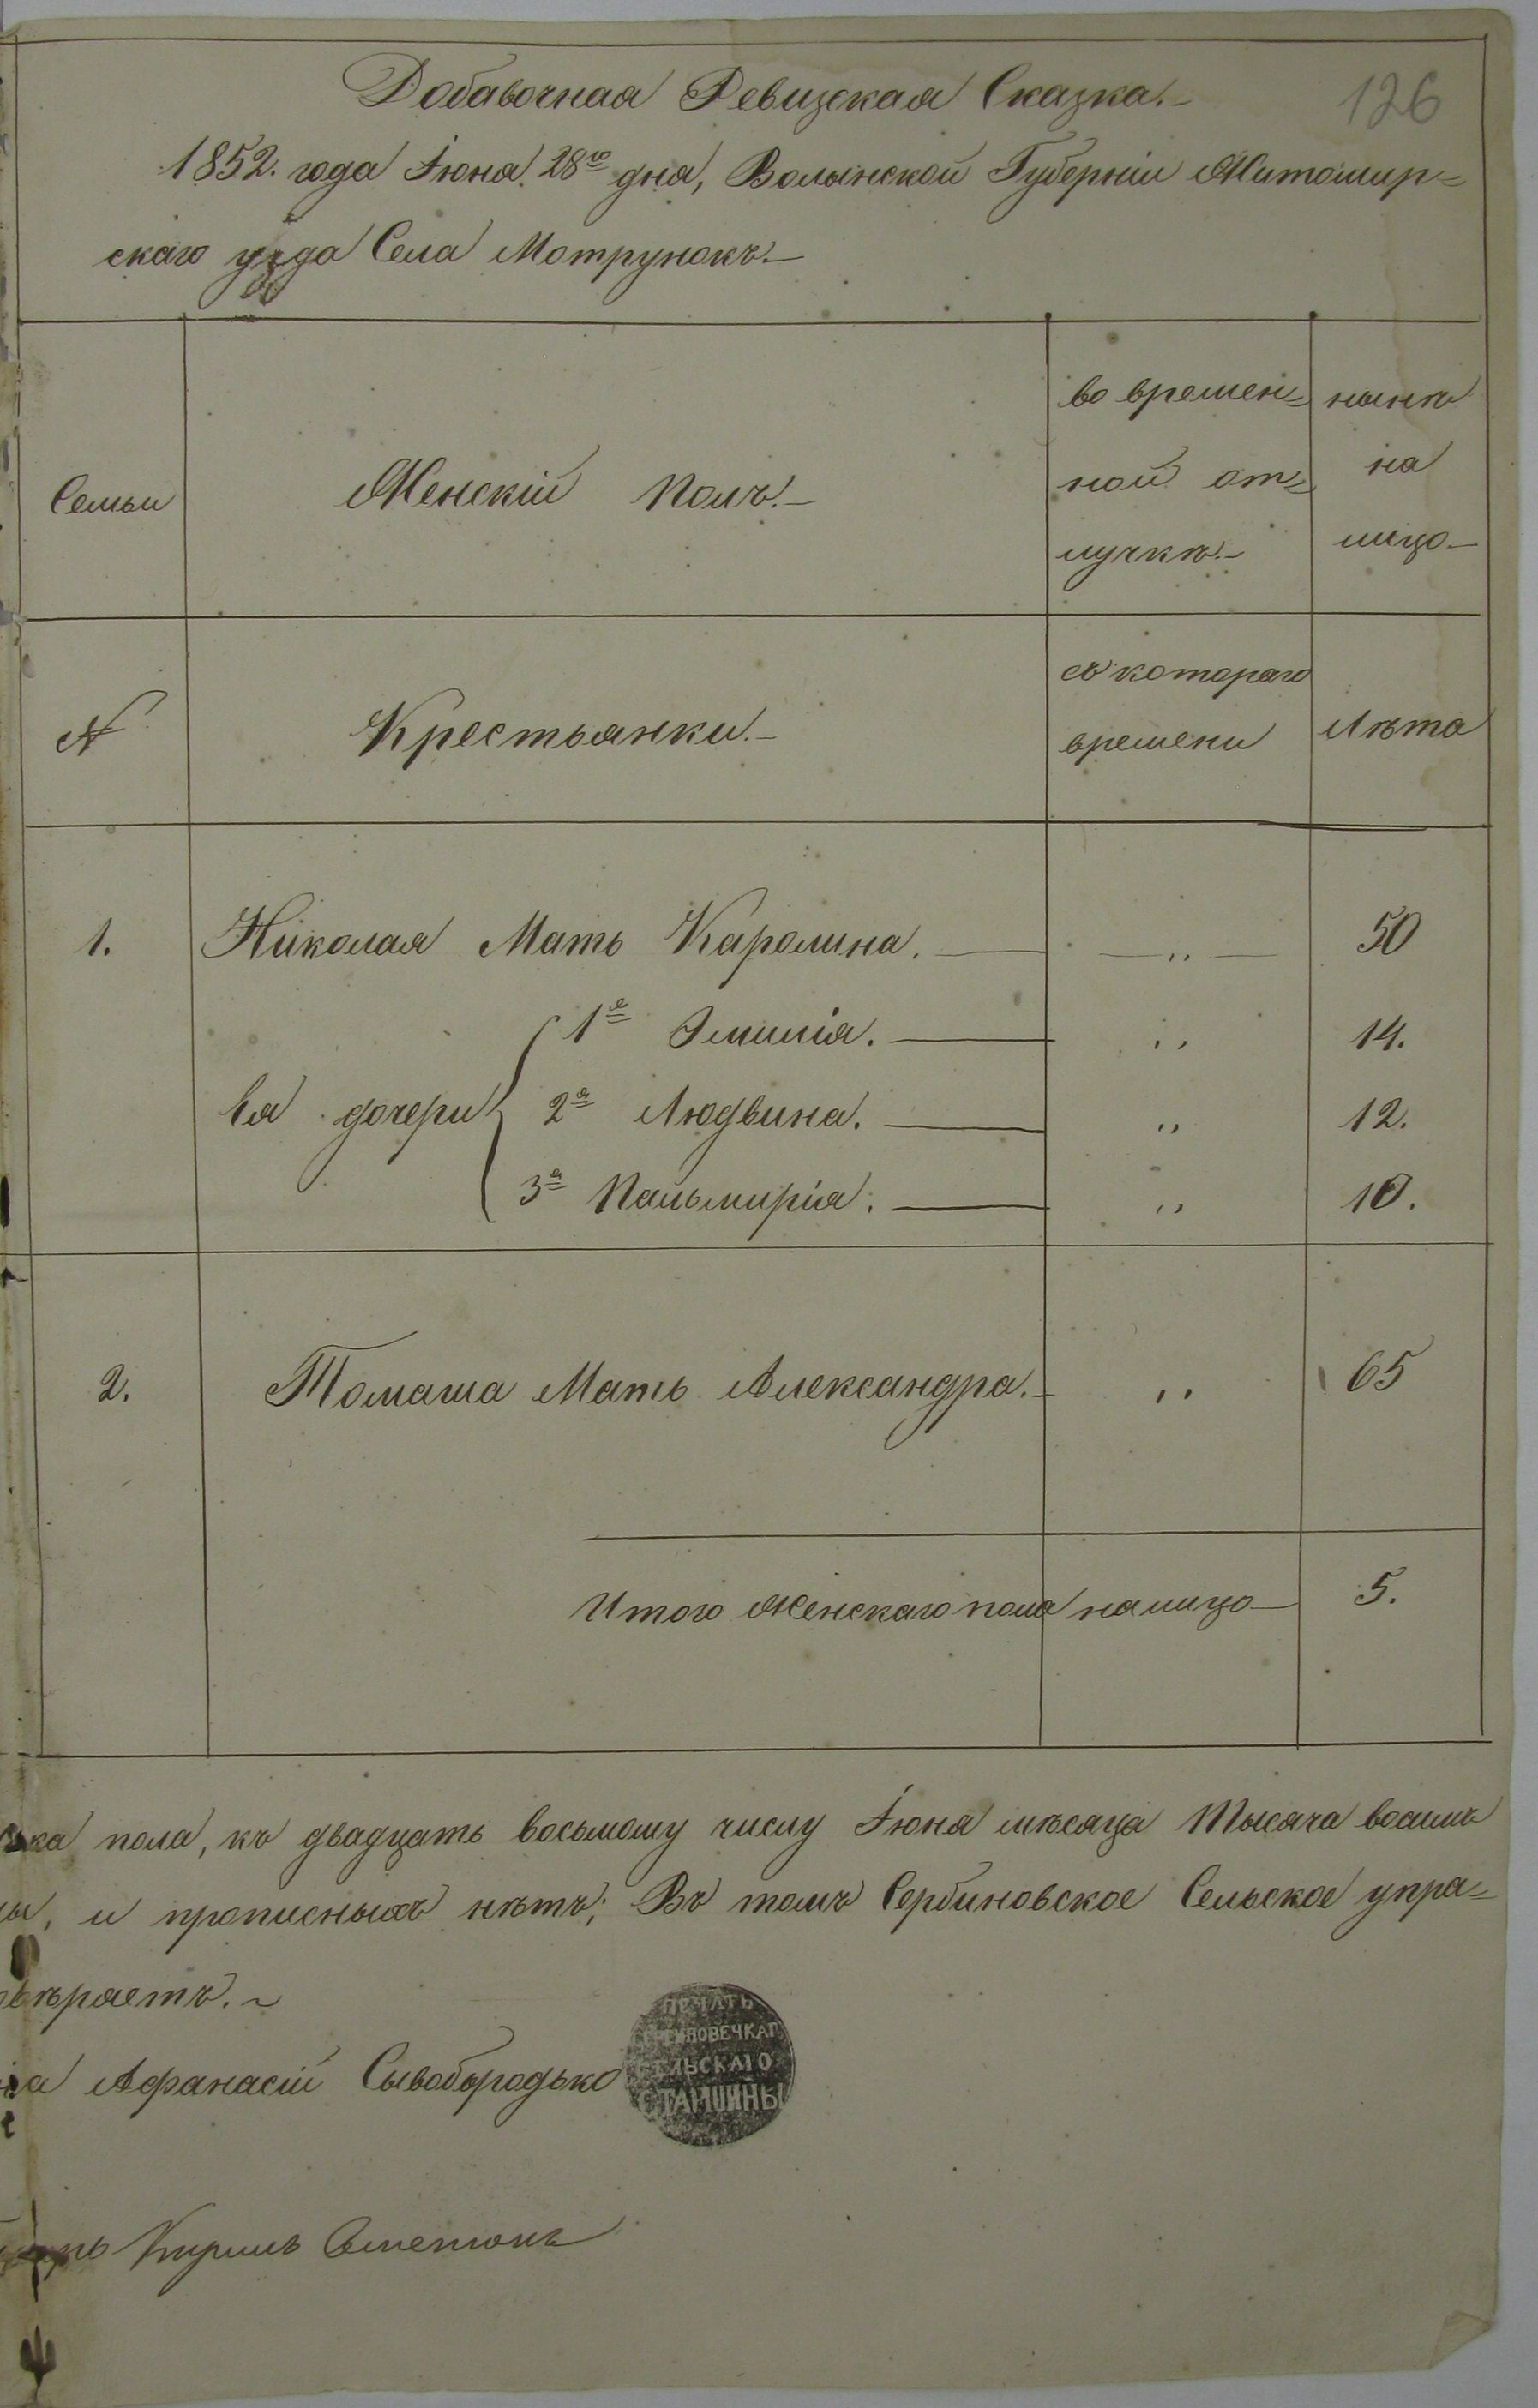 Добавочная Ревизская Сказка.
126
1852. года Іюня 28го дня, Волынской Губерніи Житомир=
скаго уѣзда Села Мотрунокъ.
Семьи
Женскій Полъ.
во времен=
ной от=
лучкѣ.
нынѣ
на
лицо
N
Крестьянки.
съ котораго
времени
Лѣта
1. Николая Мать Каролина. — „ — 50
1я Эмилія. „ 14.
Ея дочери 2я Людвина. „ 12.
3я Пальмирія. „ 10.
2. Томаша Мать Александра. „ 65
Итого Женскаго пола налицо 5.
пола, къ двадцать восьмому числу Іюня мѣсяца Тысяча восимъ
и прописныхъ нѣтъ; Въ томъ Сербиновское Сельское упра=
вѣряетъ.
Афанасій Сывобородько
ПЕЧАТЬ
СЕЛЬСКАГО
СТАРШИНЫ